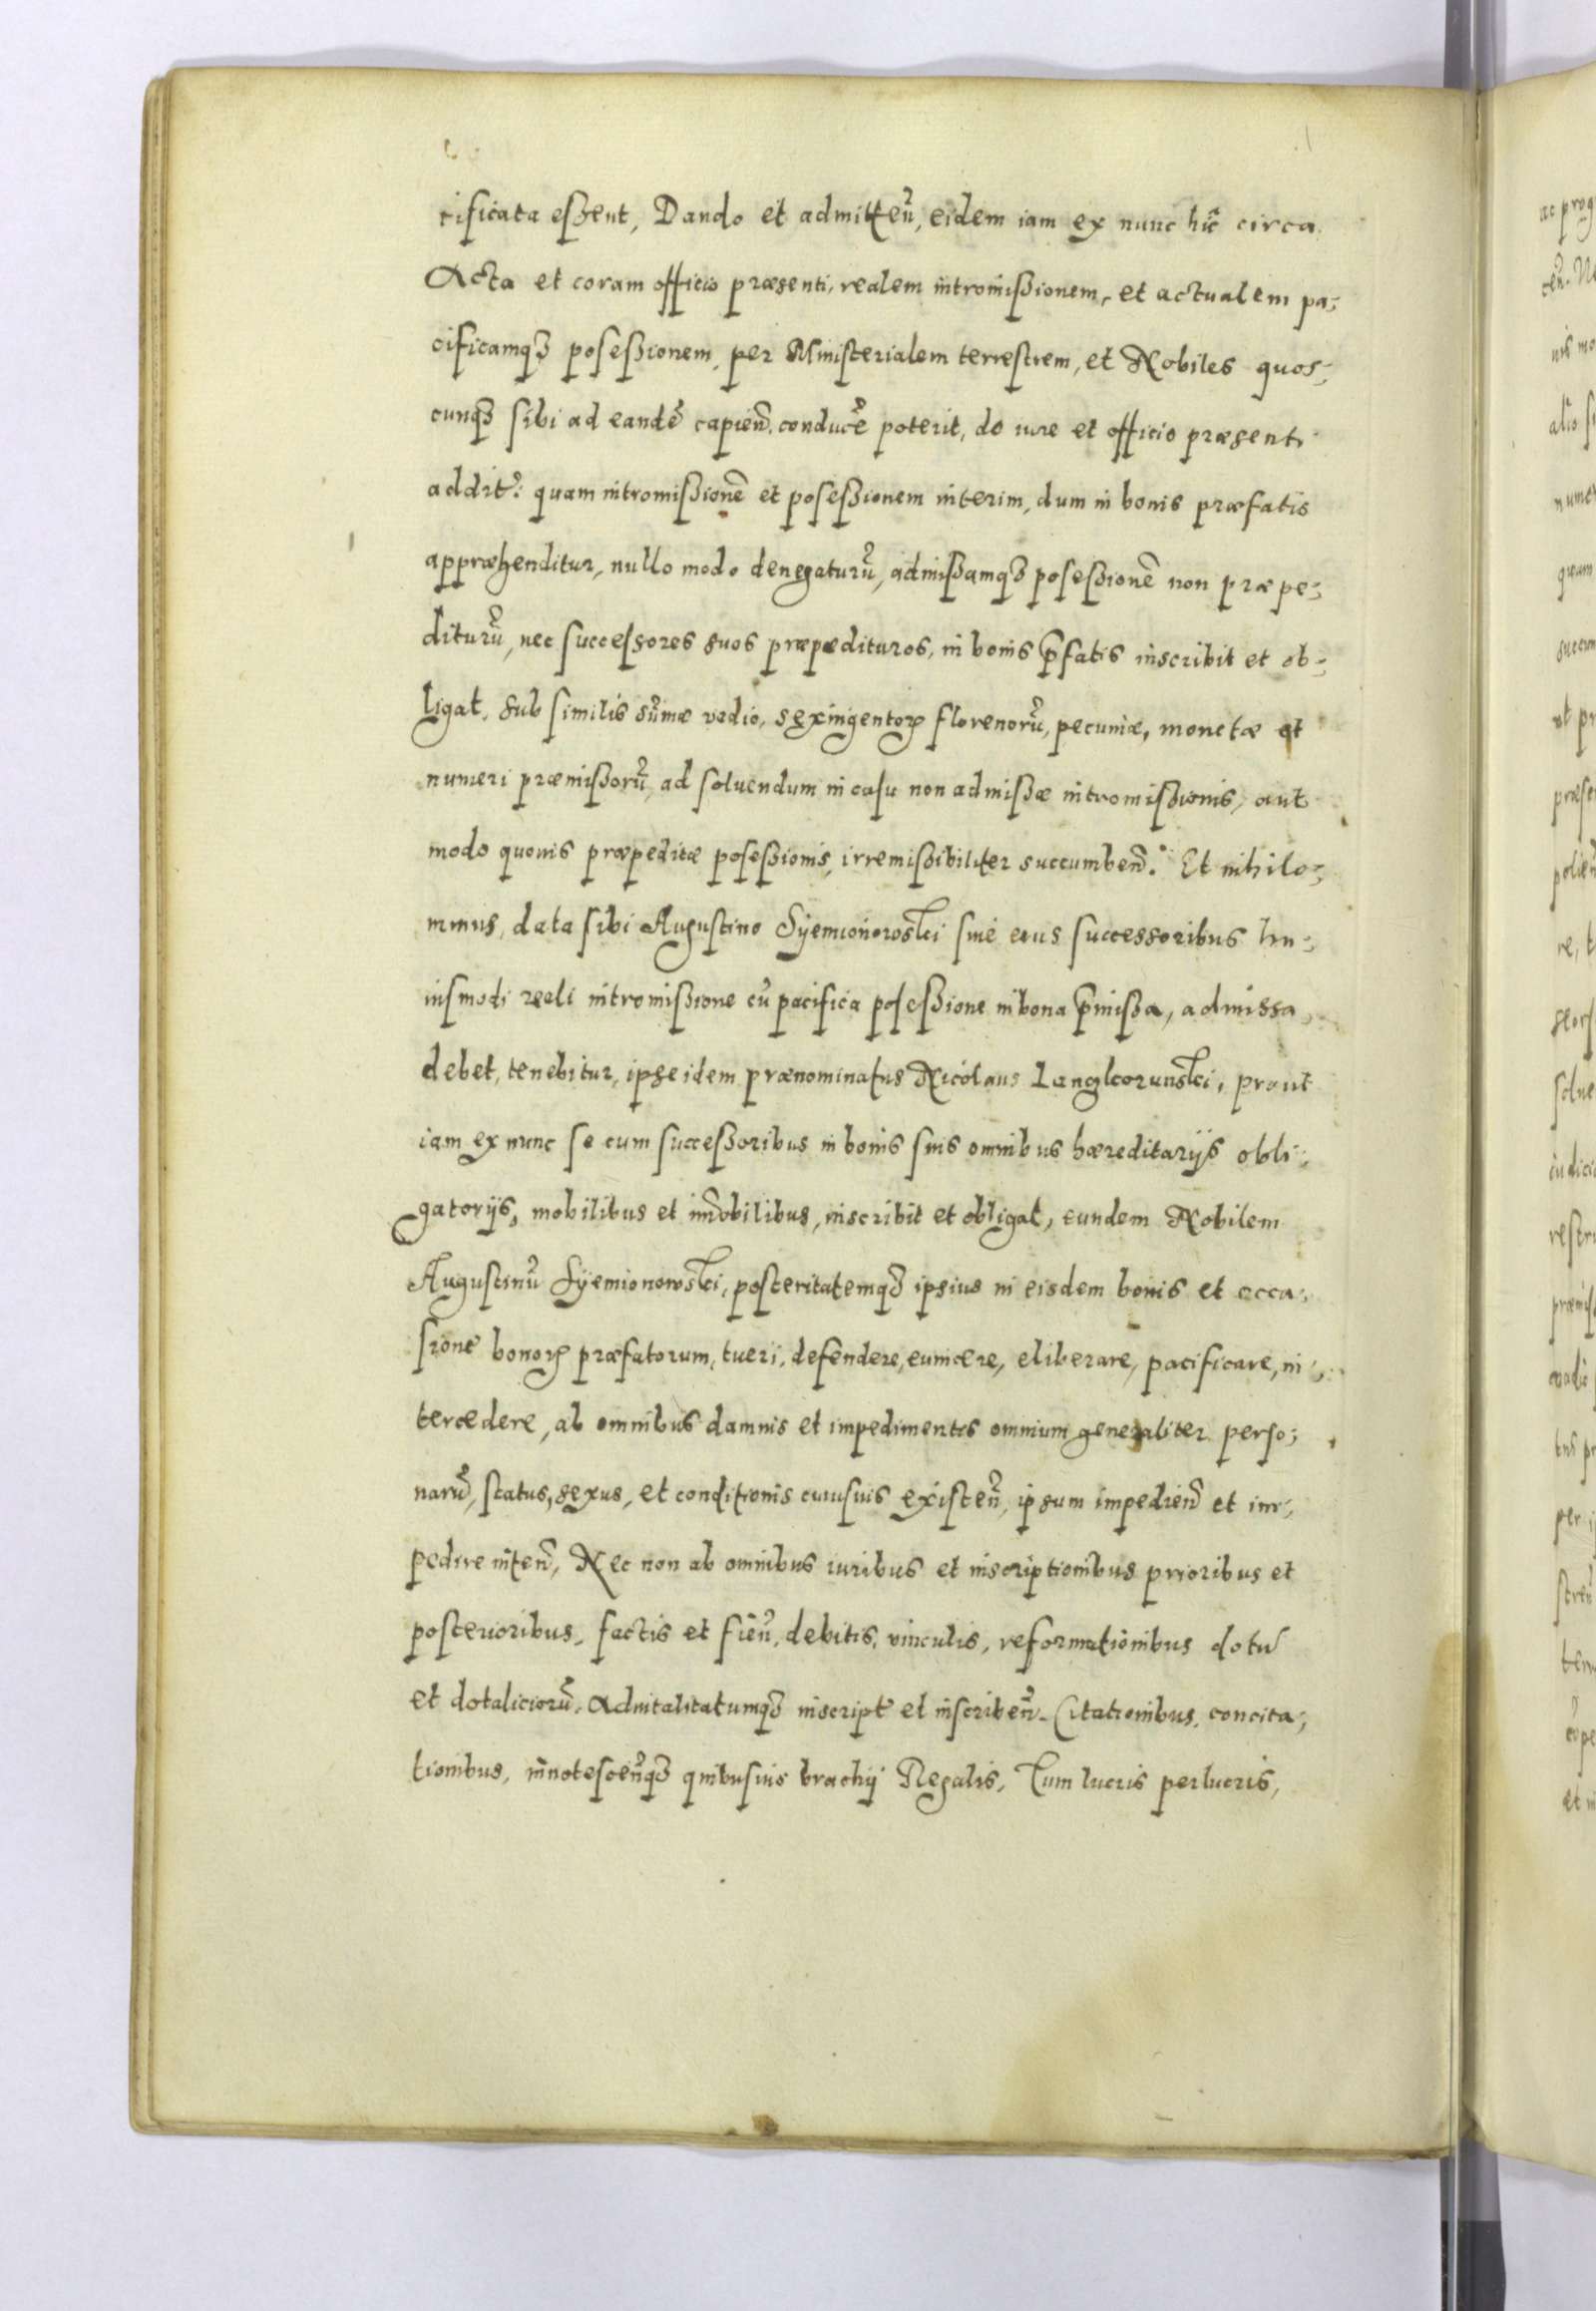 cificata essent, Dando et admitten̄, eidem iam ex nunc hic circa
Acta et coram officio præsenti, realem intromissionem, et actualem pa-
cificamq₃ posessionem, per Ministerialem terrestrem, et Nobiles quos-
cunq₃ sibi ad eandē capien̄. conducē poterit, de iure et officio præsenti
addit: quam intromissionē et posessionem interim, dum in bonis præfatis
appræhenditur, nullo modo denegaturū, admissamq₃ posessionē non præpe-
diturū, nec successores suos præpedituros, in bonis p̄fatis inscribit et ob-
ligat, sub similis sum̄æ vadio, sexingentorꝝ florenorū, pecuniæ, monetæ et
numeri præmissorū, ad soluendum in casu non admissæ intromissionis, aut
modo quouis præpeditæ posessionis, irremissibiliter succumben̄. Et nihilo-
minus, data sibi Augustino Syemionowski siue eius successoribus hu-
iusmodi reali intromissione cū pacifica posessione in bona p̄missa, admissa,
debet, tenebitur, ipse idem prænominatus Nicolaus prout
iam ex nunc se cum successoribus in bonis suis omnibus hæreditarijs obli-
gatorijs, mobilibus et im̄obilibus, inscribit et obligat, eundem Nobilem
Augustinū Syemionowski, posteritatemq₃ ipsius in eisdem bonis et occa-
sione bonorꝝ præfatorum, tueri, defendere, euincere, eliberare, pacificare, in-
tercedere, ab omnibus damnis et impedimentis omnium generaliter perso-
narū, status, sexus, et conditionis cuiusuis existen̄, ipsum impedien̄ et im-
pedire inten̄, Nec non ab omnibus iuribus et inscriptionibus prioribus et
posterioribus, factis et fien̄, debitis, vinculis, reformationibus dotū
et dotaliciorū, Aduitalitatumq₃ inscript et inscriben̄. Citationibus, concita-
tionibus, innotescen̄q₃ quibusuis brachij Regalis, Tum lucris perlucris,